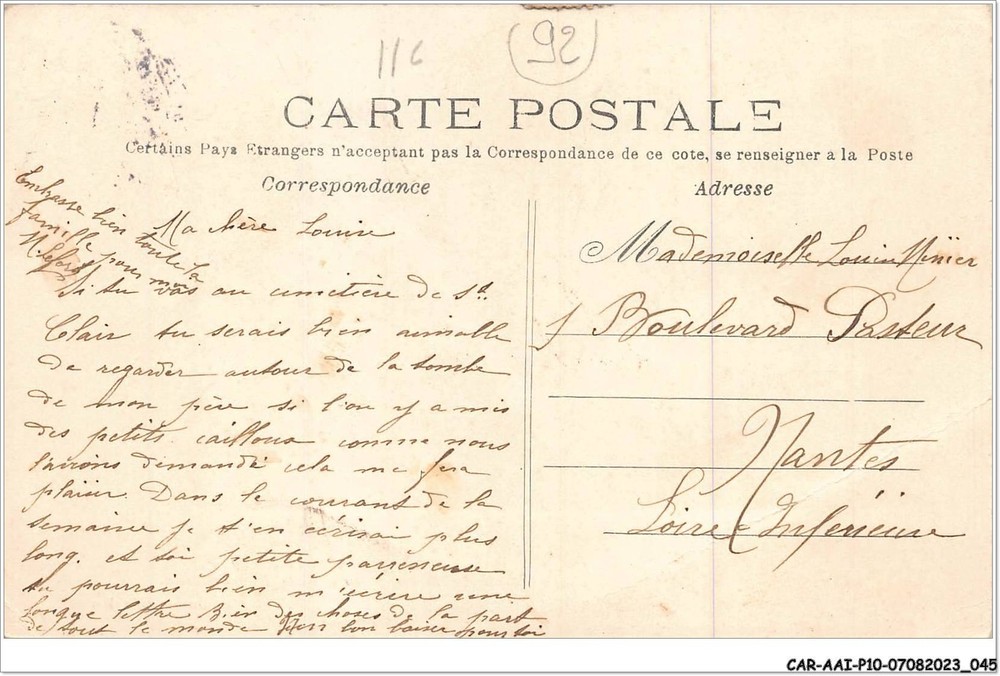 11c
92
CARTE POSTALE
Certains Pays Etrangers n'acceptant pas la Correspondance de ce cote, se renseigner a la Poste
Correspondance
Adresse
Embrasse bien toute la
famille pour moi
Ma chère Louise
Si tu vas au cimetière de St.
Clair tu serais bien aimable
de regarder autour de la tombe
de mon père si l'on y a mis
des petits cailloux comme nous
l'avions demandé cela me fera
plaisir. Dans le courant de la
semaine je t'en écrirai plus
long. et toi petite paresseuse
tu pourrais bien m'écrire une
longue lettre Bien des choses de la part
de tout le monde bon baiser pour toi
Mademoiselle Louise Minier
Boulevard Pasteur
Nantes
Loire Inférieure
CAR-AAI-P10-07082023_045